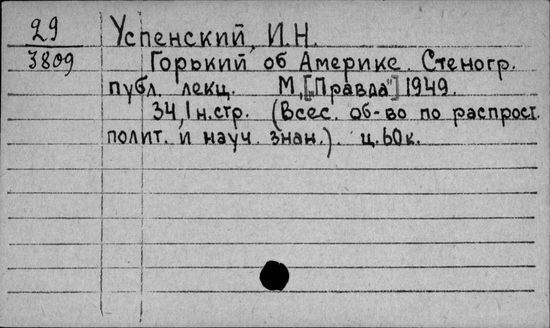 29
3809
Успенский, И.Н.
Горький об Америке. Стеногр.
публ. лекц. М, ["Правда"] 1949.
34, 1 н. стр. (Всес. об-во по распрост.
полит. и науч. знан.). ц. 60 к.